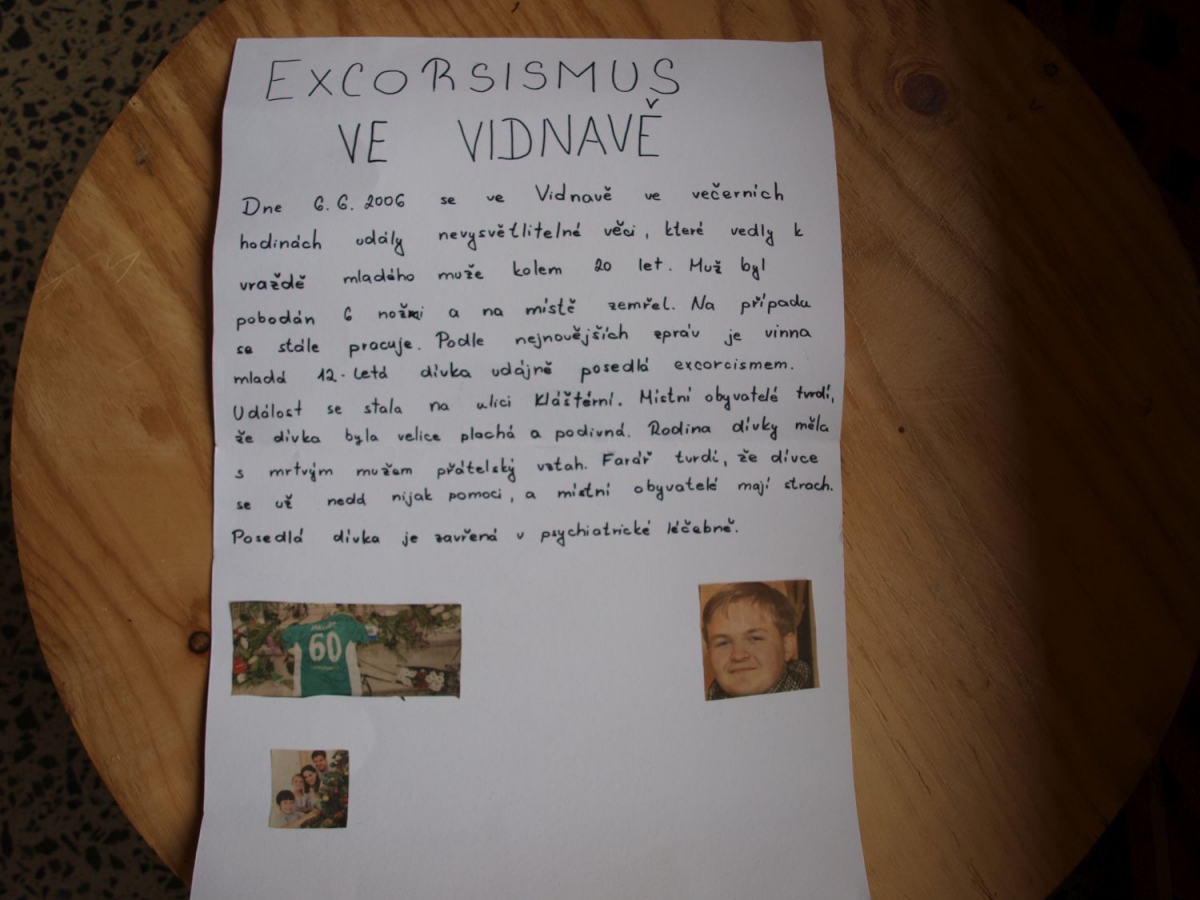 EXCORSISMUS
VE VIDNAVĚ
Dne 6.6.2006 se ve Vidnavě ve večerních
hodinách udály nevysvětlitelné věci, které vedly k
vraždě mladého muže kolem 20 let. Muž byl
pobodán 6 noži a na místě zemřel. Na případu
se stále pracuje. Podle nejnovějších zpráv je vinna
mladá 12-letá dívka údajně posedlá excorcismem.
Událost se stala na ulici Klášterní. Místní obyvatelé tvrdí,
že dívka byla velice plachá a podivná. Rodina dívky měla
s mrtvým mužem přátelský vztah. Farář tvrdí, že dívce
se už nedá nijak pomoci, a místní obyvatelé mají strach.
Posedlá dívka je zavřená v psychiatrické léčebně.
60